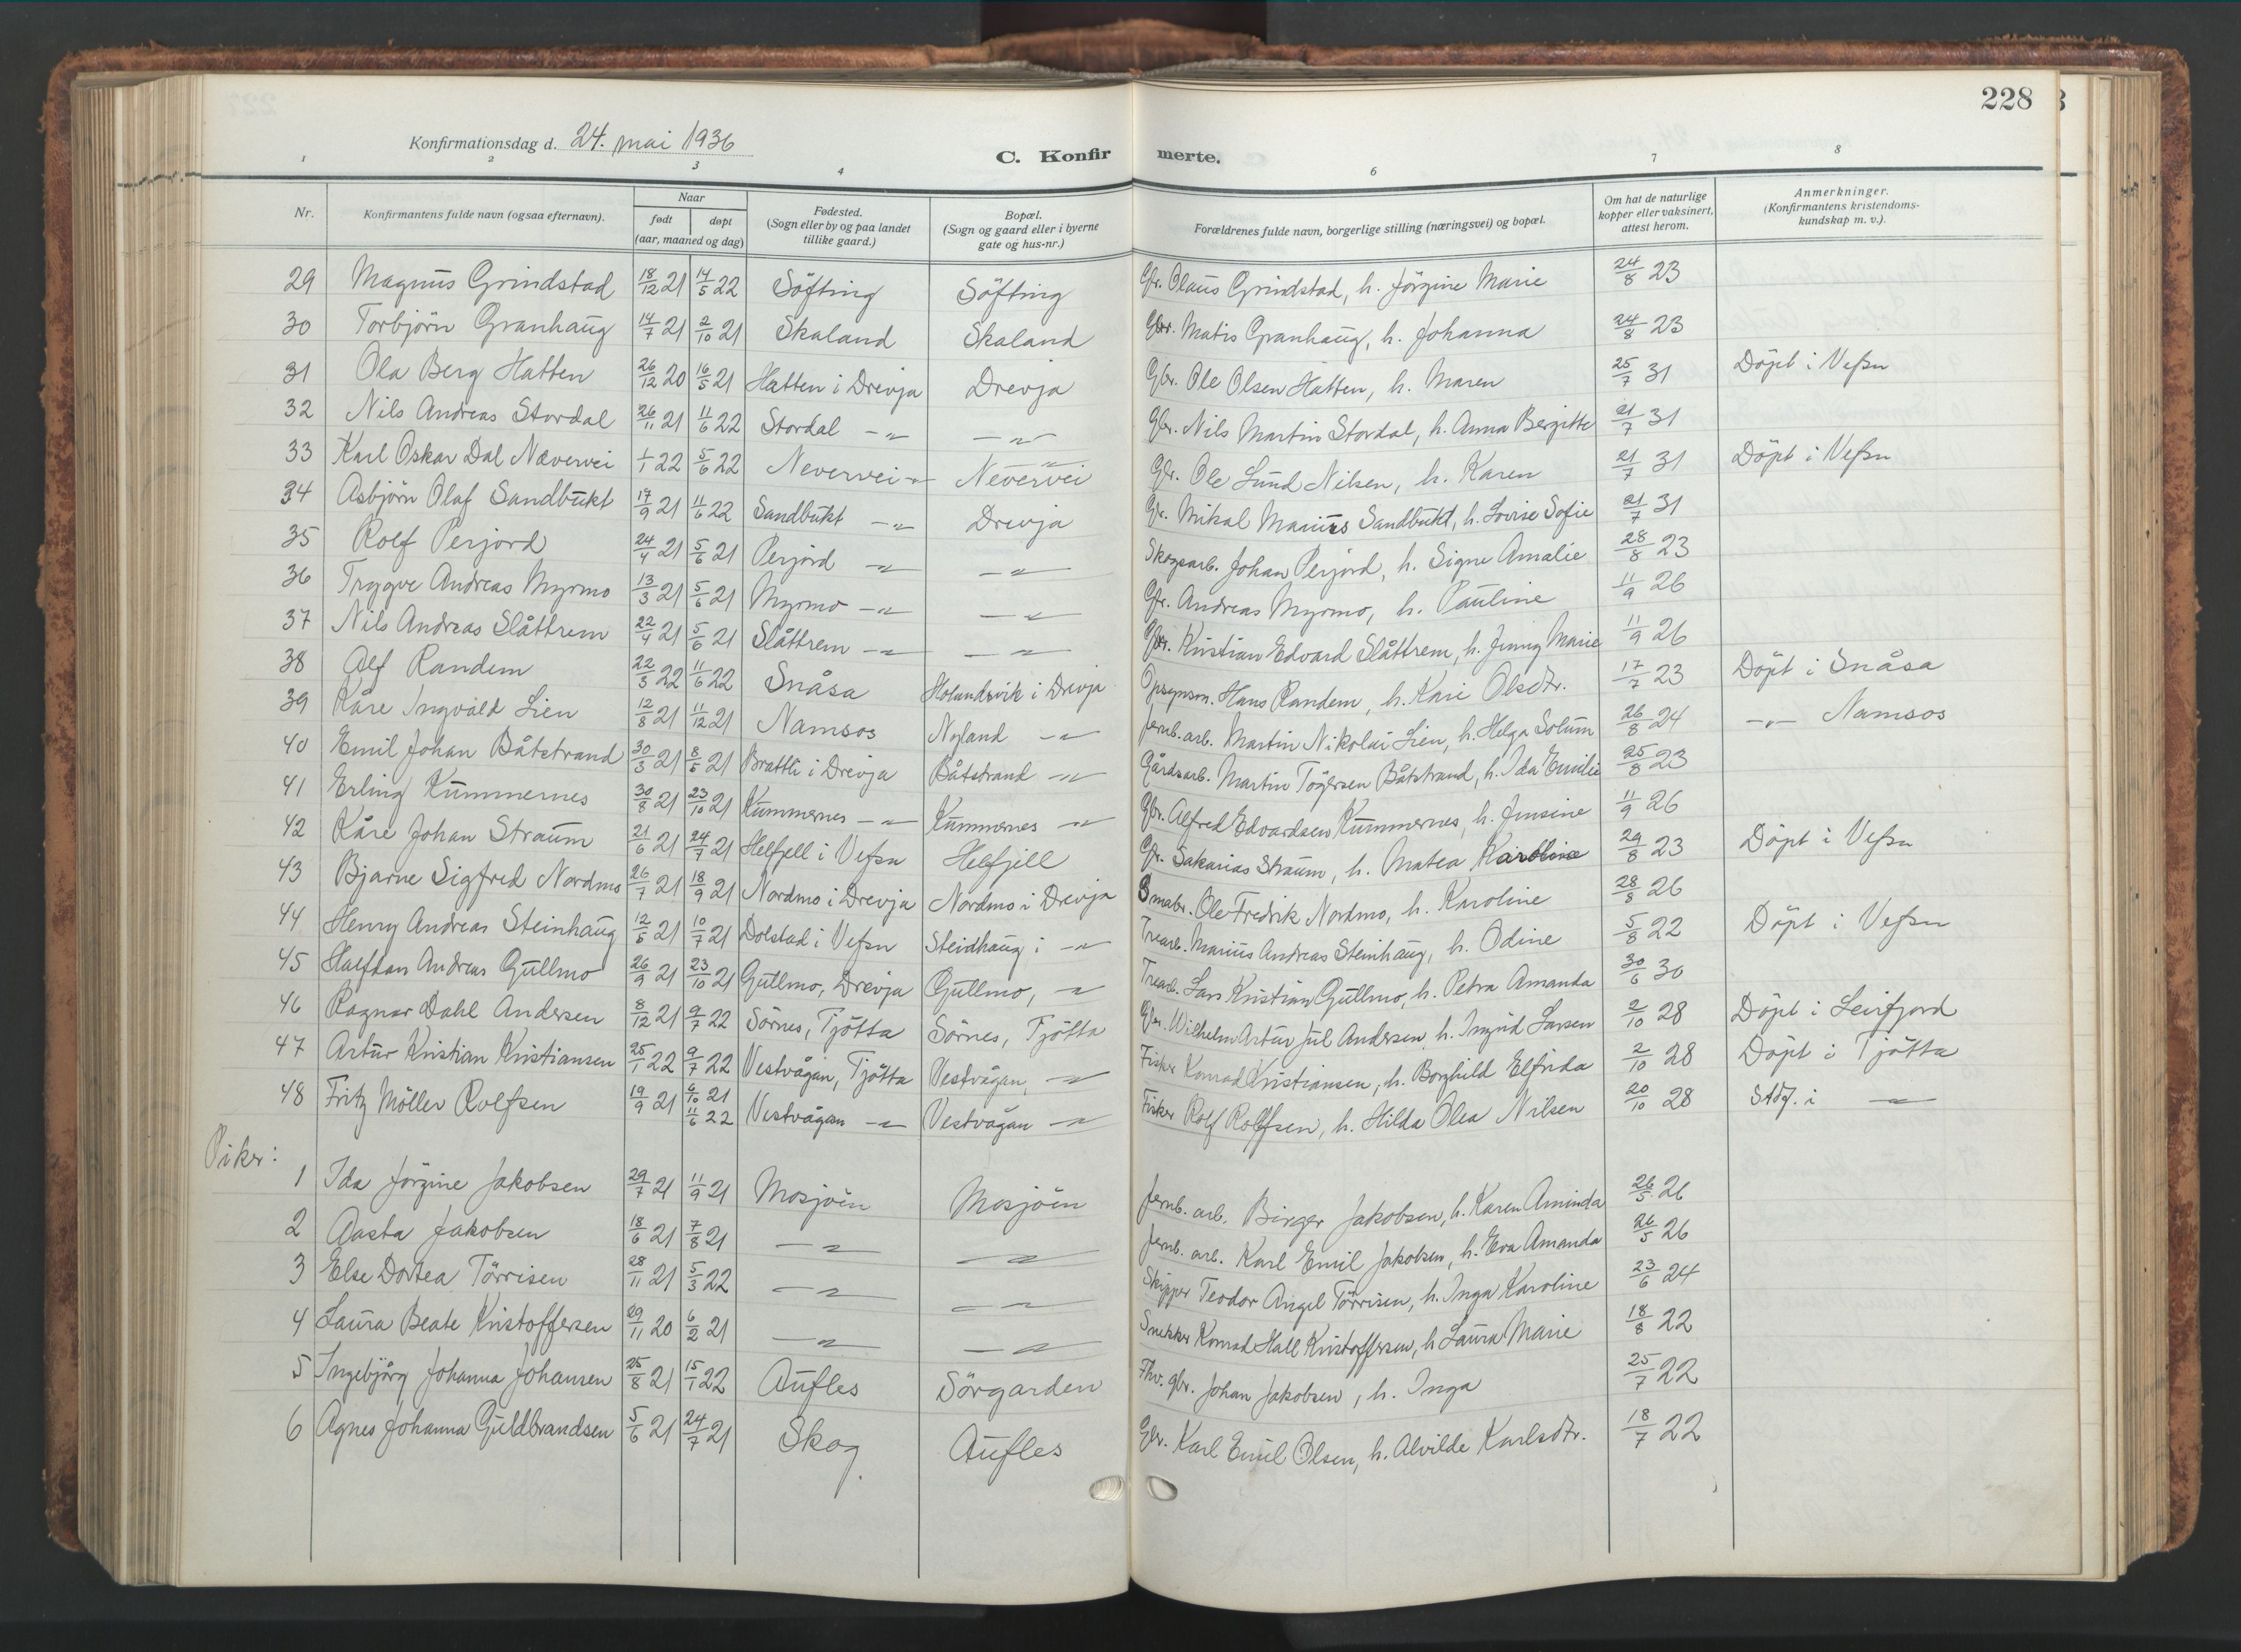 228
Konfirmationsdag d. 24. mai 1936
C. Konfirmerte.
1 2 3 4 6 7 8
Nr. Konfirmantens fulde navn (ogsaa efternavn). Naar født døpt (aar, maaned og dag) Fødested. (Sogn eller by og paa landet tillike gaard.) Bopæl. (Sogn og gaard eller i byerne gate og hus-nr.) Forældrenes fulde navn, borgerlige stilling (næringsvei) og bopæl. Om hat de naturlige kopper eller vaksinert, attest herom. Anmerkninger. (Konfirmantens kristendoms-kundskap m. v.).
29 Magnus Grindstad 18/12 21 14/5 22 Söfting Söfting Gbr. Olaus Grindstad, h. Jörgine Marie 24/8 23
30 Torbjörn Granhaug 14/7 21 2/10 21 Skaland Skaland Gbr. Matis Granhaug, h. Johanna 24/8 23
31 Ola Berg Hatten 26/12 20 16/5 21 Hatten i Drevja Drevja Gbr. Ole Olsen Hatten, h. Maren 25/7 31 Döpt i Vefsn
32 Nils Andreas Stordal 26/11 21 11/6 22 Stordal -"- -"- Gbr. Nils Martin Stordal, h. Anna Bergitte 21/7 31
33 Karl Oskar Dal Nævervei 1/1 22 5/6 22 Nevervei -"- Nevervei Gbr. Ole Lund Nilsen, h. Karen 21/7 31 Döpt i Vefsn
34 Asbjörn Olaf Sandbukt 17/9 21 11/6 22 Sandbukt -"- Drevja Gbr. Mikal Marius Sandbukt, h. Lovise Sofie 21/7 31
35 Rolf Perjord 24/4 21 5/6 21 Perjord -"- -"- Skogsarb. Johan Perjord, h. Signe Amalie 28/8 23
36 Trygve Andreas Myrmo 13/3 21 5/6 21 Myrmo -"- -"- Gbr. Andreas Myrmo, h. Pauline 11/9 26
37 Nils Andreas Slåttrem 22/4 21 5/6 21 Slåttrem -"- -"- Gbr. Kristian Edvard Slåttrem, h. Jenny Marie 11/9 26
38 Alf Randem 22/3 22 11/6 22 Snåsa Holandsvik i Drevja Opsynsm. Hans Randem, h. Kari Olsdtr. 17/7 23 Döpt i Snåsa
39 Kåre Ingvald Lien 12/8 21 11/12 21 Namsos Nyland -"- Jernb. arb. Martin Nikolai Lien, h. Helga Solum 26/8 24 -"- Namsos
40 Emil Johan Båtstrand 30/3 21 8/5 21 Brattli i Drevja Båtstrand -"- Gårdsarb. Martin Tögersen Båtstrand, h. Ida Emilie 25/8 23
41 Erling Kummernes 30/8 21 23/10 21 Kummernes -"- Kummernes -"- Gbr. Alfred Edvardsen Kummernes, h. Jensine 11/9 26
42 Kåre Johan Straum 21/6 21 24/7 21 Helfjell i Vefsn Helfjell Gbr. Sakarias Straum, h. Matea Karoline 29/8 23 Döpt i Vefsn
43 Bjarne Sigfred Nordmo 26/7 21 18/9 21 Nordmo i Drevja Nordmo i Drevja Småbr. Ole Fredrik Nordmo, h. Karoline 28/8 26
44 Henry Andreas Steinhaug 12/5 21 10/7 21 Dolstad i Vefsn Steidhaug i -"- Trearb. Marius Andreas Steinhaug, h. Odine 5/8 22 Döpt i Vefsn
45 Halfdan Andreas Gullmo 26/9 21 23/10 21 Gullmo, Drevja Gullmo, -"- Trearb. Lars Kristian Gullmo, h. Petra Amanda 30/6 30
46 Ragnar Dahl Andersen 8/12 21 9/7 22 Sörnes, Tjötta Sörnes, Tjötta Gbr. Wilhelm Artur Jul Andersen, h. Ingrid Larsen 2/10 28 Döpt i Leirfjord
47 Artur Kristian Kristiansen 25/1 22 9/7 22 Vestvågan, Tjötta Vestvågan, -"- Fisker Konrad Kristiansen, h. Borghild Elfrida 2/10 28 Döpt i Tjötta
48 Fritz Möller Rolfsen 19/9 21 6/10 21 11/6 22 Vestvågan -"- Vestvågan -"- Fisker Rolf Rolfsen, h. Hilda Olea Nilsen 20/10 28 Stdf. i -"-
Piker:
1 Ida Jörgine Jakobsen 29/7 21 11/9 21 Mosjöen Mosjöen Jernb. arb. Birger Jakobsen, h. Karen Aminda 26/5 26
2 Aasta Jakobsen 18/6 21 7/8 21 -"- -"- Jernb. arb. Karl Emil Jakobsen, h. Eva Amanda 26/5 26
3 Else Dortea Törrisen 28/11 21 5/3 22 -"- -"- Skipper Teodor Angel Törrisen, h. Inga Karoline 23/6 24
4 Laura Beate Kristoffersen 29/11 20 6/2 21 -"- -"- Snekker Konrad Hall Kristoffersen, h. Laura Marie 18/8 22
5 Ingebjörg Johanna Johansen 25/8 21 15/1 22 Aufles Sörgarden Fhv. gbr. Johan Jakobsen, h. Inga 25/7 22
6 Agnes Johanna Guldbrandsen 5/6 21 24/7 21 Skog Aufles Gbr. Karl Emil Olsen, h. Alvilde Karlsdtr. 18/7 22